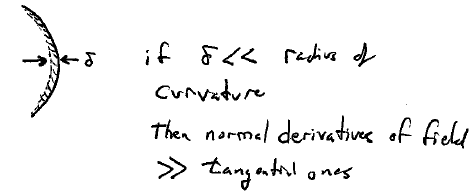 δ if δ << radius of
curvature
then normal derivatives of field
>> tangential ones